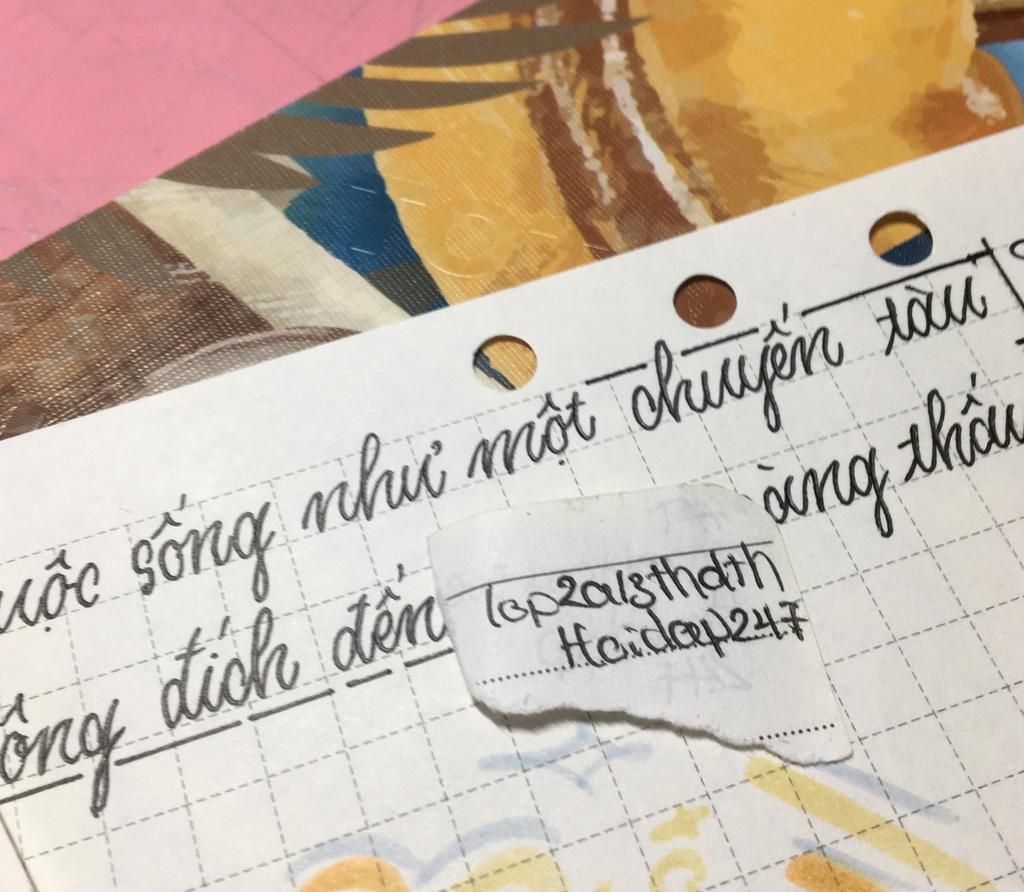 uộc sống như một chuyến tàu
ông đích đến
àng thấu
lop2a13thdth
Hoidap247